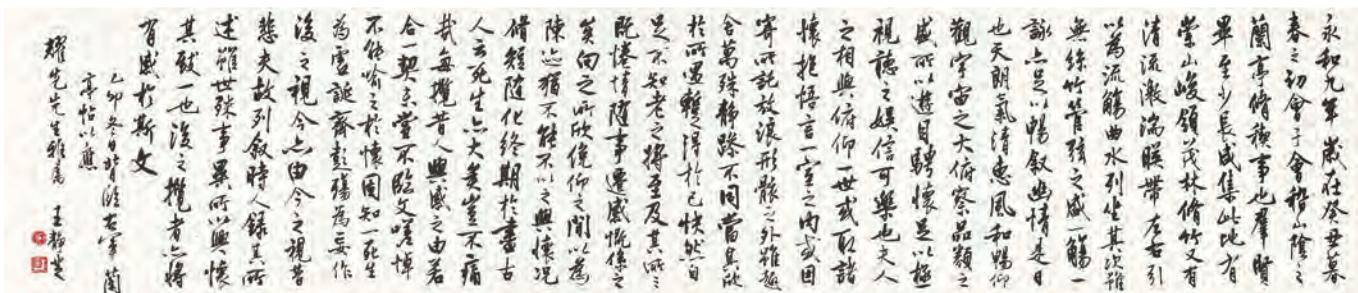 永和九年歲在癸丑暮
春之初會于會稽山陰之
蘭亭脩稧事也羣賢
畢至少長咸集此地有
崇山峻領茂林脩竹又有
清流激湍暎帶左右引
以為流觴曲水列坐其次雖
無絲竹管弦之盛一觴一
詠亦足以暢叙幽情是日
也天朗氣清惠風和暢仰
觀宇宙之大俯察品類之
盛所以遊目騁懷足以極
視聽之娛信可樂也夫人
之相與俯仰一世或取諸
懷抱悟言一室之內或因
寄所託放浪形骸之外雖趣
舍萬殊靜躁不同當其欣
於所遇暫得於己快然自
足不知老之將至及其所之
既惓情隨事遷感慨係之
矣向之所欣俛仰之間以為
陳迹猶不能不以之興懷況
脩短隨化終期於盡古
人云死生亦大矣豈不痛
哉每攬昔人興感之由若
合一契未嘗不臨文嗟悼
不能喻之於懷固知一死生
為虛誕齊彭殤為妄作
後之視今亦由今之視昔
悲夫故列叙時人錄其所
述雖世殊事異所以興懷
其致一也後之攬者亦將
有感於斯文
乙卯冬日背臨右軍蘭
亭帖以應
耀先先生雅屬 王靜芝